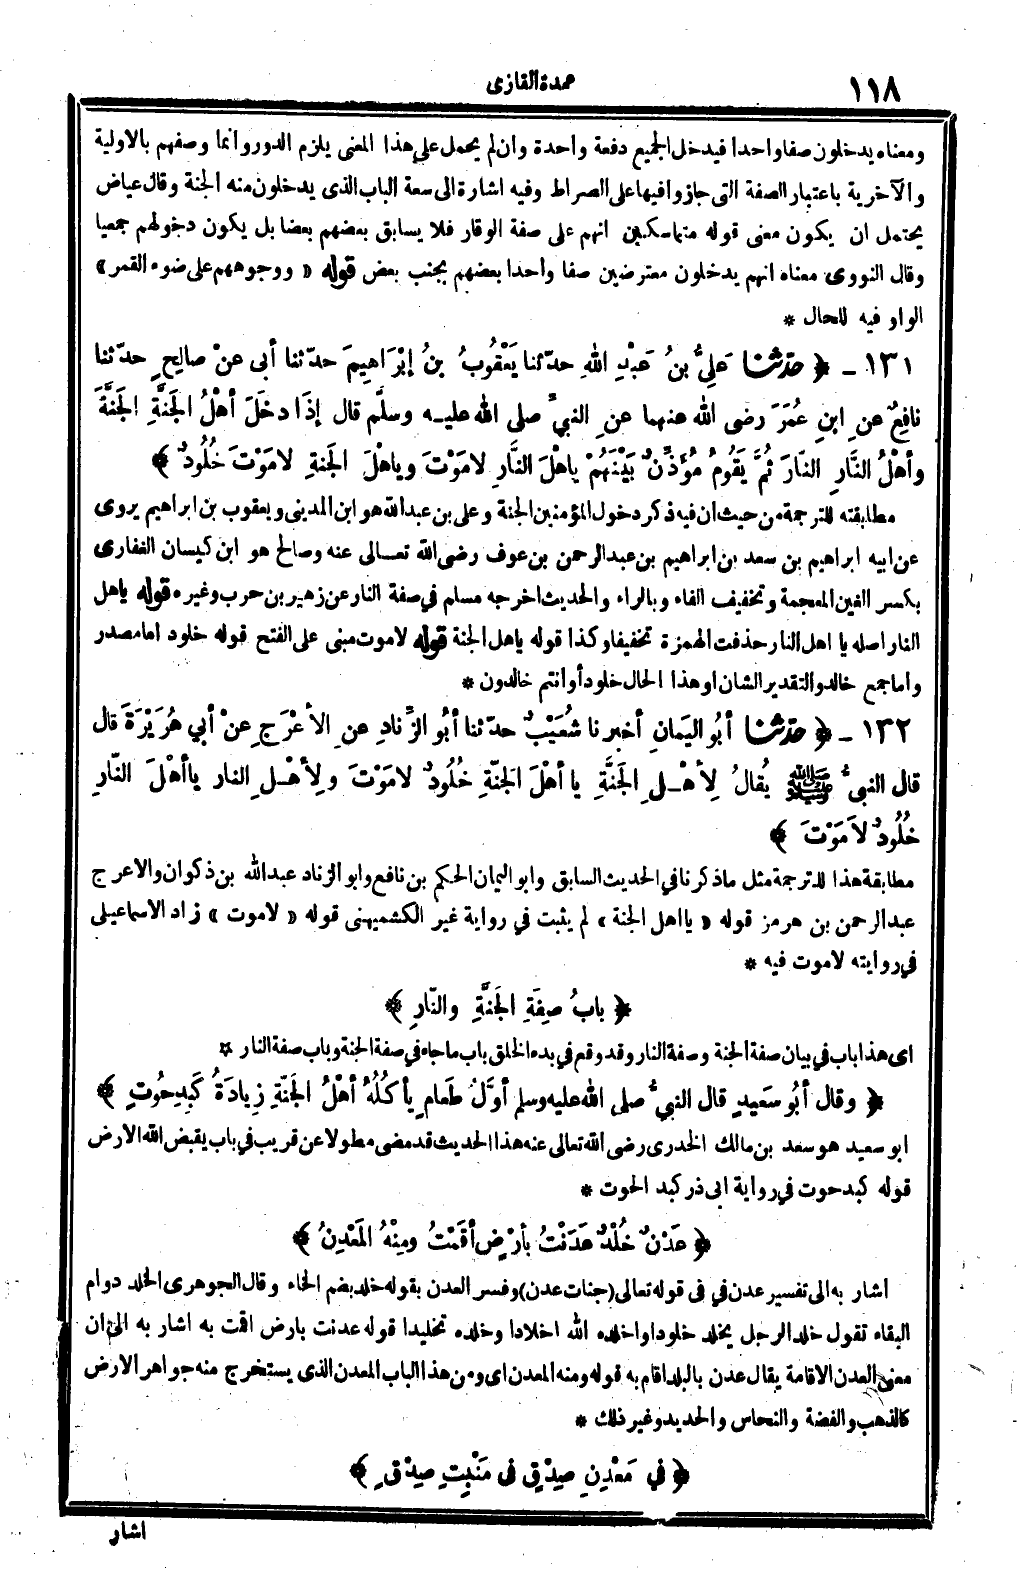 ١١٨
عمدة القارى
ومعناه يدخلون صفا واحدا فيدخل الجميع دفعة واحدة وان لم يحمل على هذا المعنى يلزم الدور وانما وصفهم بالاولية
والآخرية باعتبار الصفة التى جازوا فيها على الصراط وفيه اشارة الى سعة الباب الذى يدخلون منه الجنة وقال عياض
يحتمل ان يكون معنى قوله متماسكين انهم على صفة الوقار فلا يسابق بعضهم بعضا بل يكون دخولهم جميعا
وقال النووى معناه انهم يدخلون معترضين صفا واحدا بعضهم بجنب بعض قوله « ووجوههم على ضوء القمر »
الواو فيه للحال *
١٣١ - ﴿ حَدَّثَنَا عَلِيُّ بنُ عَبْدِ اللهِ حدثنا يَعْقُوبُ بنُ إبْرَاهِيمَ حدثنا أبى عنْ صالحٍ حدثنا
نافِعٌ عنِ ابنِ عُمَرَ رضى الله عنهما عنِ النبيِّ صلى الله عليه وسلَّم قال إذَا دخَلَ أهْلُ الجَنَّةِ الجَنَّةَ
وأهْلُ النَّارِ النّارَ ثُمَّ يَقُومُ مُؤَذِّنٌ بَيْنَهُمْ ياهْلَ النَّارِ لامَوْتَ وياهْلَ الجَنةِ لامَوْتَ خُلُودٌ ﴾
مطابقته للترجمة من حيث ان فيه ذكر دخول المؤمنين الجنة وعلى بن عبدالله هو ابن المدينى ويعقوب بن ابراهيم يروى
عن ابيه ابراهيم بن سعد بن ابراهيم بن عبدالرحمن بن عوف رضى الله تعالى عنه وصالح هو ابن كيسان الغفارى
بكسر الغين المعجمة وتخفيف الفاء وبالراء والحديث اخرجه مسلم في صفة النار عن زهير بن حرب وغيره قوله ياهل
النار اصله يا اهل النار حذفت الهمزة تخفيفا وكذا قوله ياهل الجنة قوله لاموت مبنى على الفتح قوله خلود امامصدر
واما جمع خالد والتقدير الشان اوهذا الحال خلود أوانتم خالدون *
١٣٢ - ﴿ حَدَّثَنَا أبُو اليَمانِ أخبرنا شُعَيْبٌ حدثنا أبُو الزِّنادِ عنِ الأعْرَجِ عنْ أبي هُرَيْرَةَ قال
قال النبيُّ ﷺ يُقالُ لِأهْلِ الجَنَّةِ يا أهْلَ الجَنّةِ خُلُودٌ لامَوْتَ ولِأهْلِ النار ياأهْلَ النّارِ
خُلُودٌ لامَوْتَ ﴾
مطابقة هذا للترجمة مثل ماذكرنا في الحديث السابق وابو اليمان الحكم بن نافع وابو الزناد عبدالله بن ذكوان والاعرج
عبدالرحمن بن هرمز قوله « يااهل الجنة » لم يثبت في رواية غير الكشميهنى قوله « لاموت » زاد الاسماعيلى
في روايته لاموت فيه *
﴿ بابُ صِفَةِ الجَنَّةِ والنّارِ ﴾
اى هذا باب في بيان صفة الجنة وصفة النار وقد وقع في بدء الخلق باب ماجاء في صفة الجنة وباب صفة النار *
﴿ وقال أبُو سَعِيدٍ قال النبيُّ صلى الله عليه وسلم أوَّلُ طَعامٍ يأكُلُهُ أهْلُ الجَنّةِ زِيادَةُ كَبِدِ حُوتٍ ﴾
ابو سعيد هو سعد بن مالك الخدرى رضى الله تعالى عنه هذا الحديث قد مضى مطولا عن قريب في باب يقبض الله الارض
قوله كبد حوت في رواية ابى ذر كبد الحوت *
﴿ عَدْنٌ خُلْدٌ عَدَنْتُ بأرْضٍ أقَمْتُ ومِنْهُ المَعْدِنُ ﴾
اشار به الى تفسير عدن في فى قوله تعالى (جنات عدن) وفسر العدن بقوله خلد بضم الخاء وقال الجوهرى الخلد دوام
البقاء تقول خلد الرجل يخلد خلودا واخلده الله اخلادا وخلده تخليدا قوله عدنت بارض اقمت به اشار به الى ان
معنى العدن الاقامة يقال عدن بالبلد اقام به قوله ومنه المعدن اى ومن هذا الباب المعدن الذى يستخرج منه جواهر الارض
كالذهب والفضة والنحاس والحديد وغير ذلك *
﴿ في مَعْدِنِ صِدْقٍ فى مَنْبِتِ صِدْقٍ ﴾
اشار